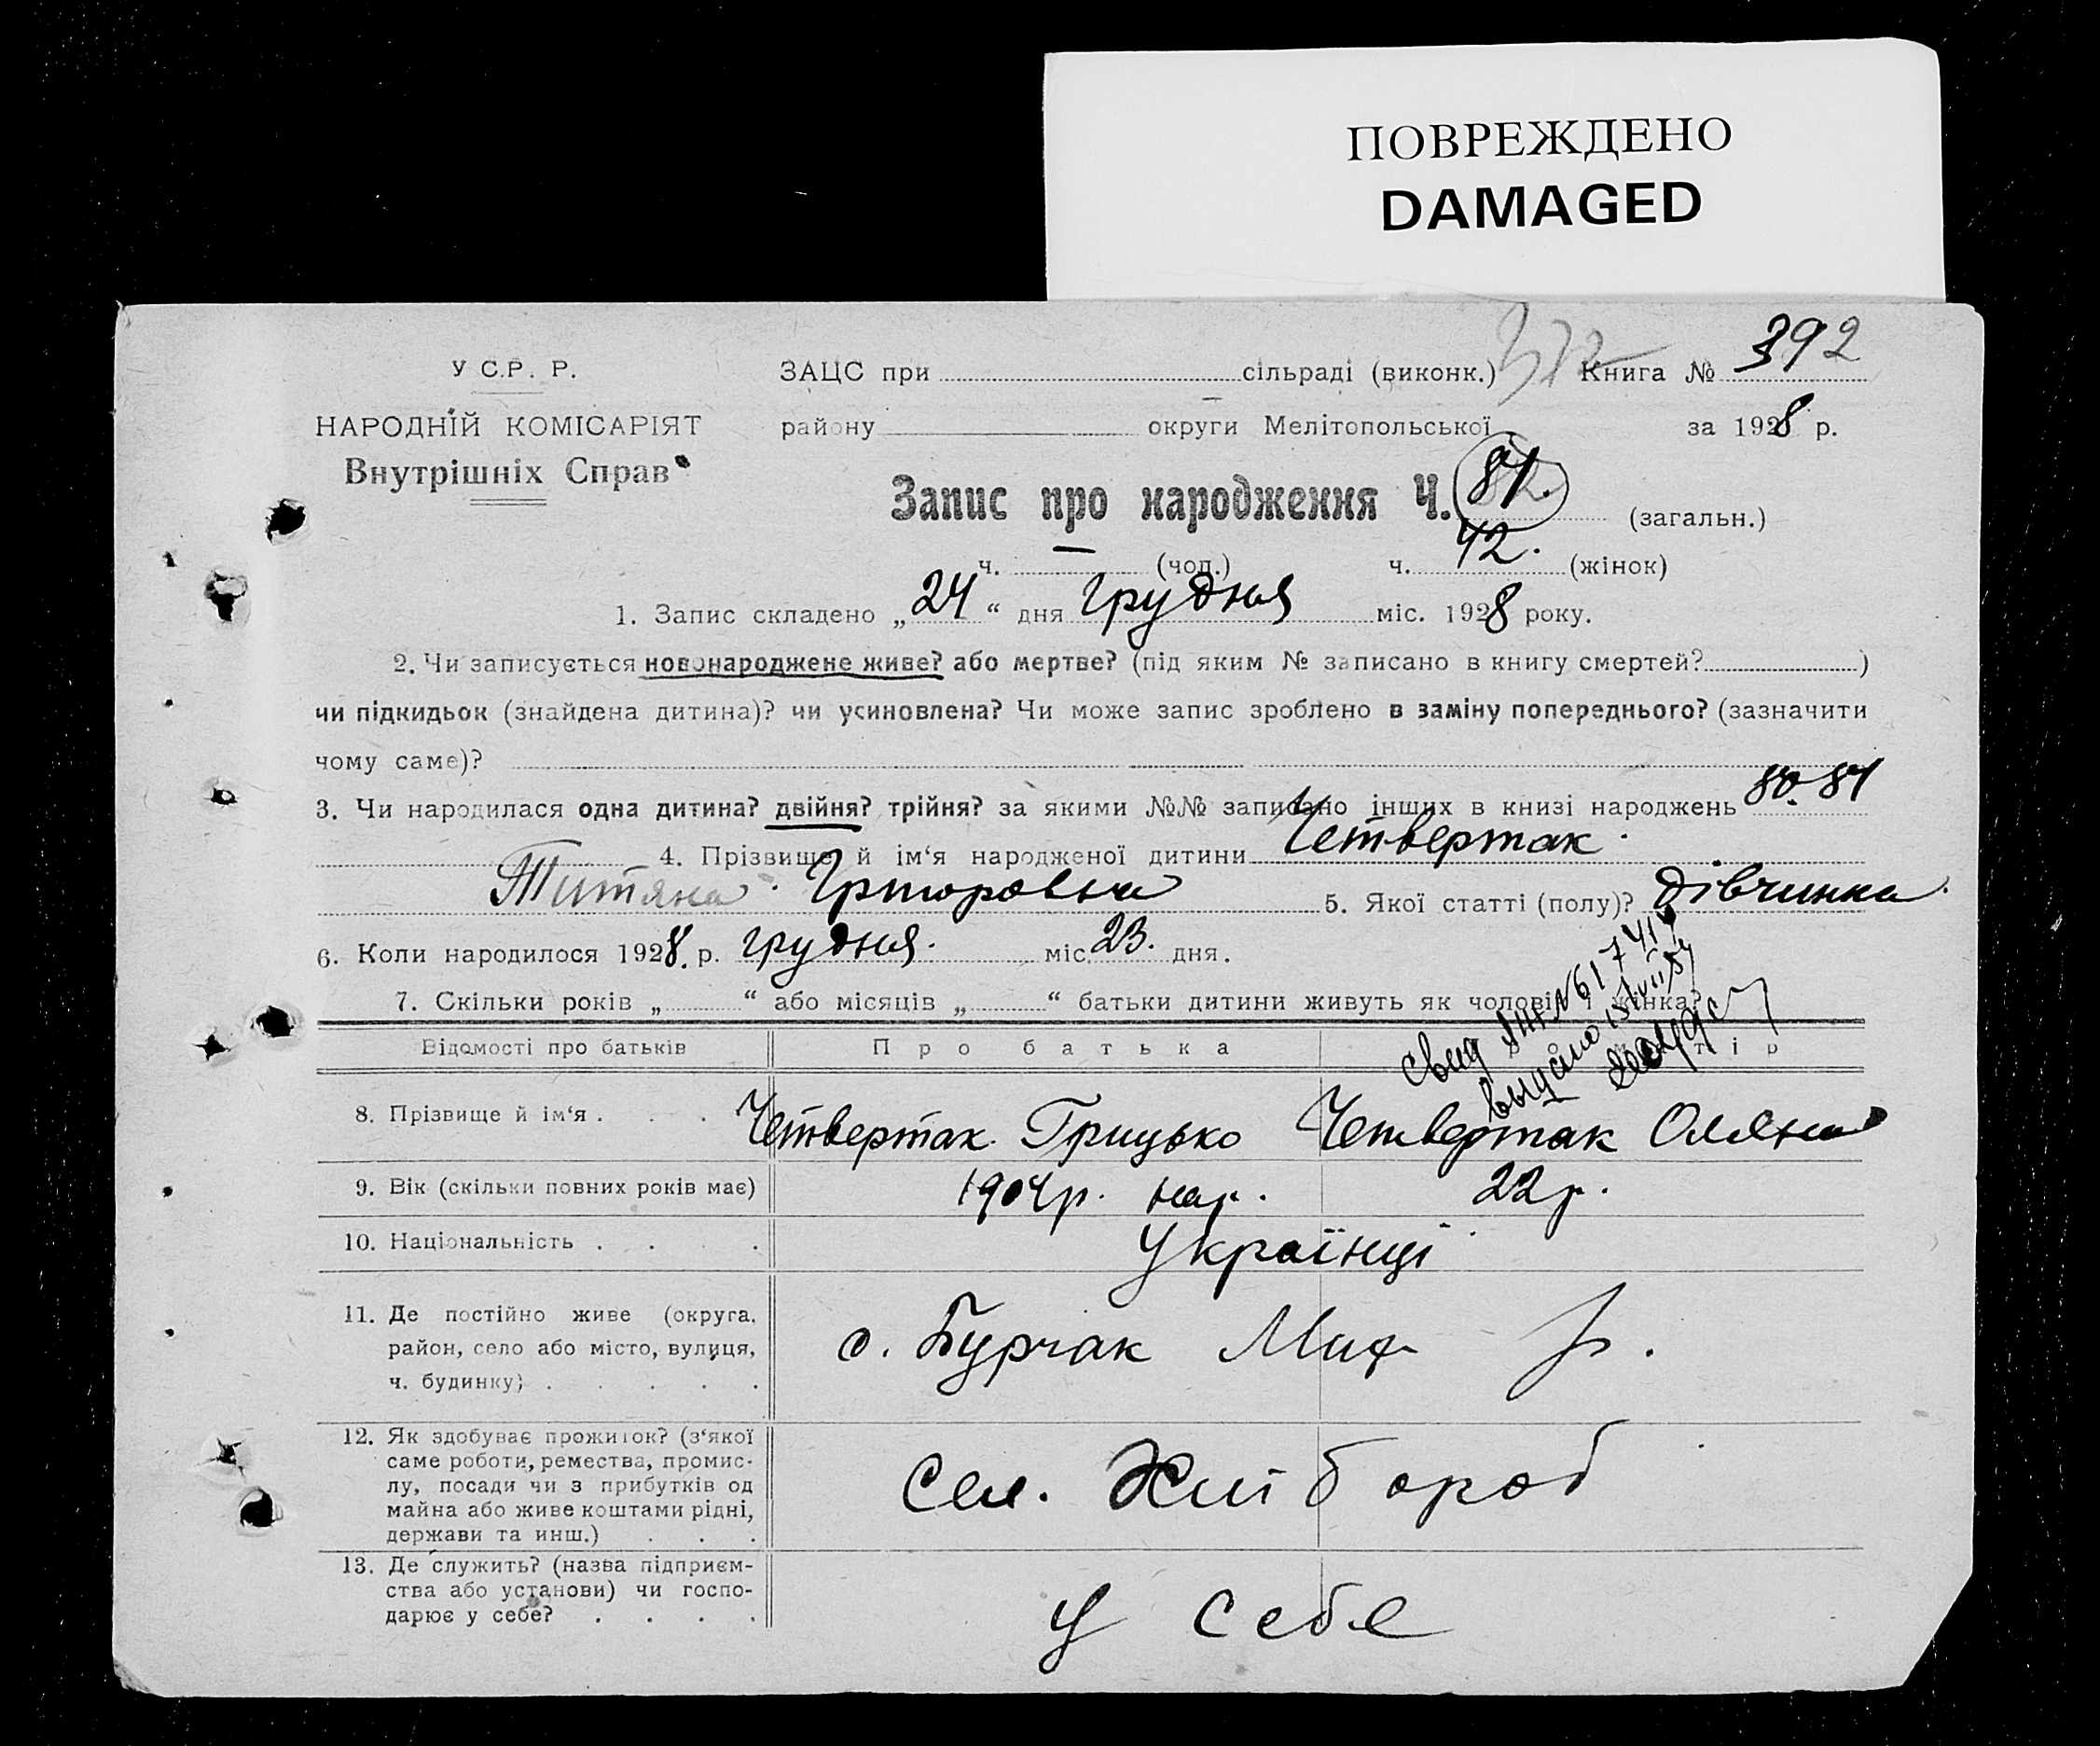 ПОВРЕЖДЕНО
DAMAGED
У С.Р. Р.
НАРОДНІЙ КОМІСАРІЯТ
Внутрішніх Справ
ЗАЦС при сільраді (виконк.) 372 Книга № 392
району округи Мелітопольської за 1928 р.
Запис про народження Ч. 81. (загальн.)
ч. — (чол.) ч. 42. (жінок)
1. Запис складено „24“ дня грудня міс. 1928 року.
2. Чи записується новонароджене живе? або мертве? (під яким № записано в книгу смертей? )
чи підкидьок (знайдена дитина)? чи усиновлена? Чи може запис зроблено в заміну попереднього? (зазначити
чому саме)?
3. Чи народилася одна дитина? двійня? трійня? за якими №№ записано інших в книзі народжень 80-81
4. Прізвище й ім‘я народженої дитини Четвертак
Титяна 5. Якої статті (полу)? дівчинка
6. Коли народилося 1928. р. грудня. міс. 23. дня.
7. Скільки років „ “ або місяців „ “ батьки дитини живуть як чоловік жінка?
Відомості про батьків Про батька
8. Прізвище й ім‘я . . . Четвертак Грицько Четвертак Оляна
9. Вік (скільки повних років має) 1904р. нар. 22р.
10. Національність . . . . Українці
11. Де постійно живе (округа,
район, село або місто, вулиця,
ч. будинку) . . . . .
с. Бурчак Мих р.
12. Як здобуває прожиток? (з‘якої
саме роботи, ремества, промис-
лу, посади чи з прибутків од
майна або живе коштами рідні,
держави та инш.) . . .
Сел. Хлібороб
13. Де служить? (назва підприєм-
ства або установи) чи госпо-
дарює у себе? . . . .
У себе